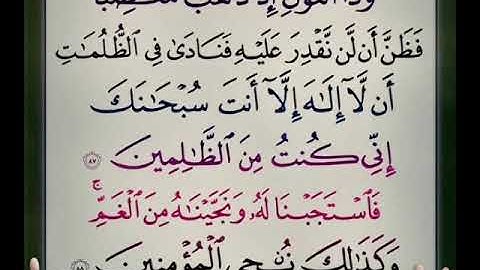 وَذَا ٱلنُّونِ إِذ ذَّهَبَ مُغَٰضِبًا
فَظَنَّ أَن لَّن نَّقْدِرَ عَلَيْهِ فَنَادَىٰ فِي ٱلظُّلُمَٰتِ
أَن لَّآ إِلَٰهَ إِلَّآ أَنتَ سُبْحَٰنَكَ
إِنِّي كُنتُ مِنَ ٱلظَّٰلِمِينَ ٨٧
فَٱسْتَجَبْنَا لَهُۥ وَنَجَّيْنَٰهُ مِنَ ٱلْغَمِّ ۚ
وَكَذَٰلِكَ نُۨجِي ٱلْمُؤْمِنِينَ ٨٨